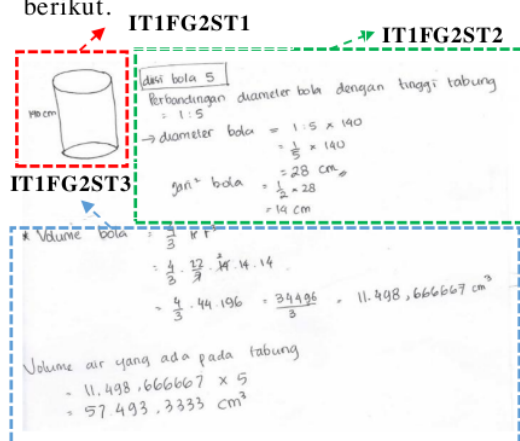 berikut.
IT1FG2ST1
IT1FG2ST2
diisi bola 5
140 cm
Perbandingan diameter bola dengan tinggi tabung
= 1:5
→ diameter bola = 1:5 × 140
= 1/5 × 140
= 28 cm
jari² bola = 1/2 × 28
= 14 cm
IT1FG2ST3
* Volume bola = 4/3 π r³
= 4/3 . 22/7 . 14 . 14 . 14
= 4/3 . 44 . 196 = 34496/3 = 11.498,666667 cm³
Volume air yang ada pada tabung
= 11.498,666667 × 5
= 57.493,3333 cm³